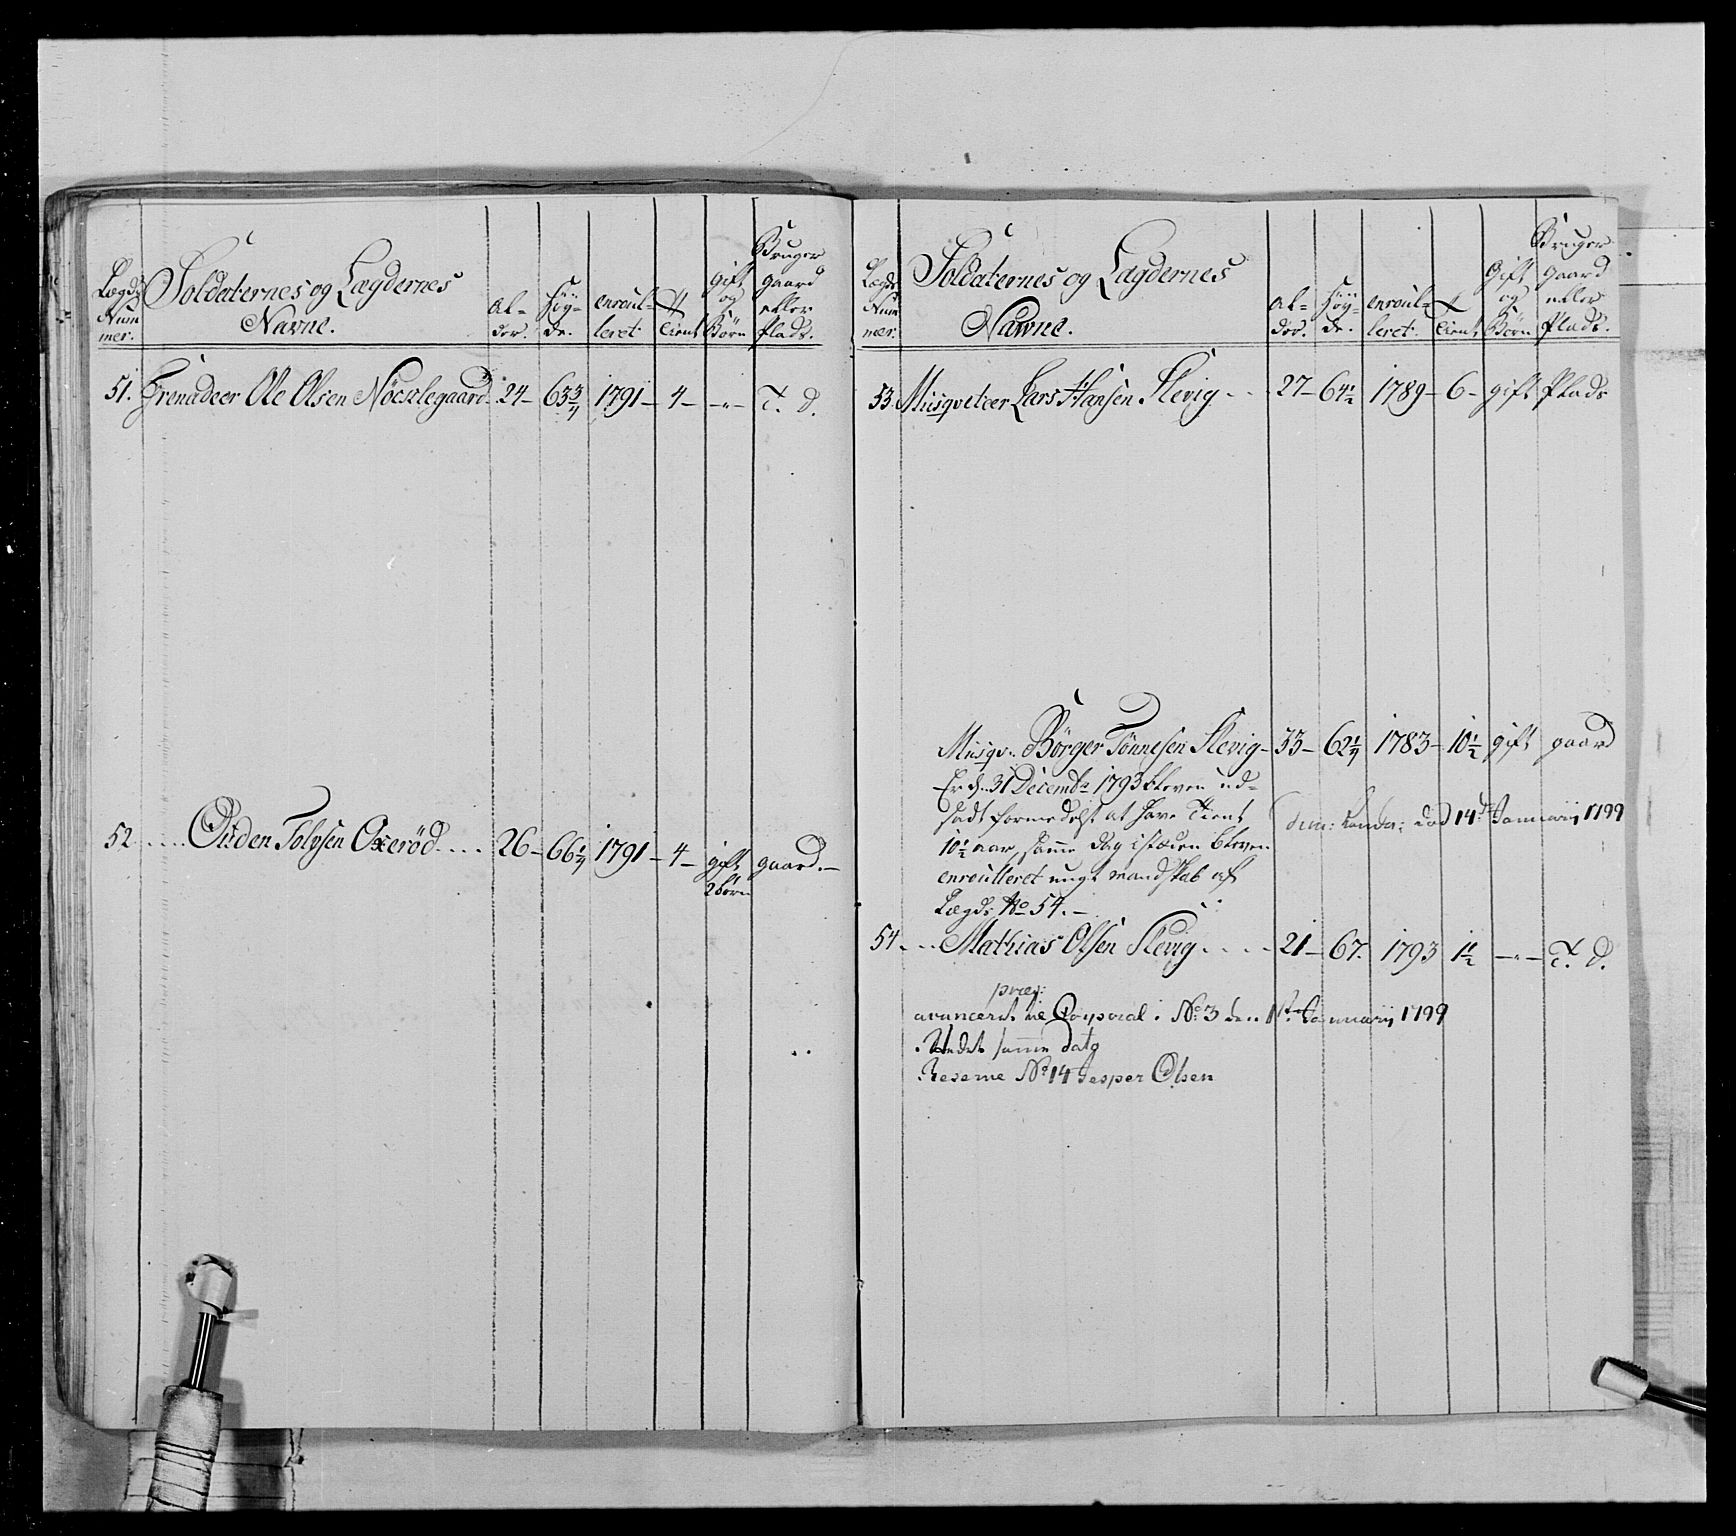 Lægds Num mer.
Soldaternes og Lægdernes
Navne.
Al- der.
Høy- de.
enroul- leret
tient
gift og Børn
Bruger gaard eller Plads.
51. Grenadeer Ole Olsen Nöcklegaard 24 - 63 3/4 1791 - 4 - - " - T. d.
52 .... Anden Tolvsen Oxeröd .... 26 - 66 1/4 1791 - 4 - gift gaard. -
2 börn
Lægds Num mer.
Soldaternes og Lægdernes
Navne.
Al- der.
Høy- de.
enroul- leret.
tient
Gift og Børn
Bruger gaard eller Plads.
53. Musqveteer Lars Hansen Slevig - - 27 - 64 1/2 1789 - 6 - gift Plads
Musqv: Börger Tönnesen Slevig - 33 - 62 1/4 1783 - 10 1/2 gift gaard
Er d. 31 Decemb: 1793 bleven ud-
sadt formedelst at have tient
10 1/2 aar, samme dag isteden bleven
enroulleret ungt mandskab af
Lægds No 54. -
14de Januarij 1799
54 ... Mathias Olsen Slevig .... 21 - 67. 1793 1 1/2 - " - T. d.
avanceret til Corporal i No 3 den 1ste Januarij 1799
samme Dato
Reserve No 14 Jesper Olsen